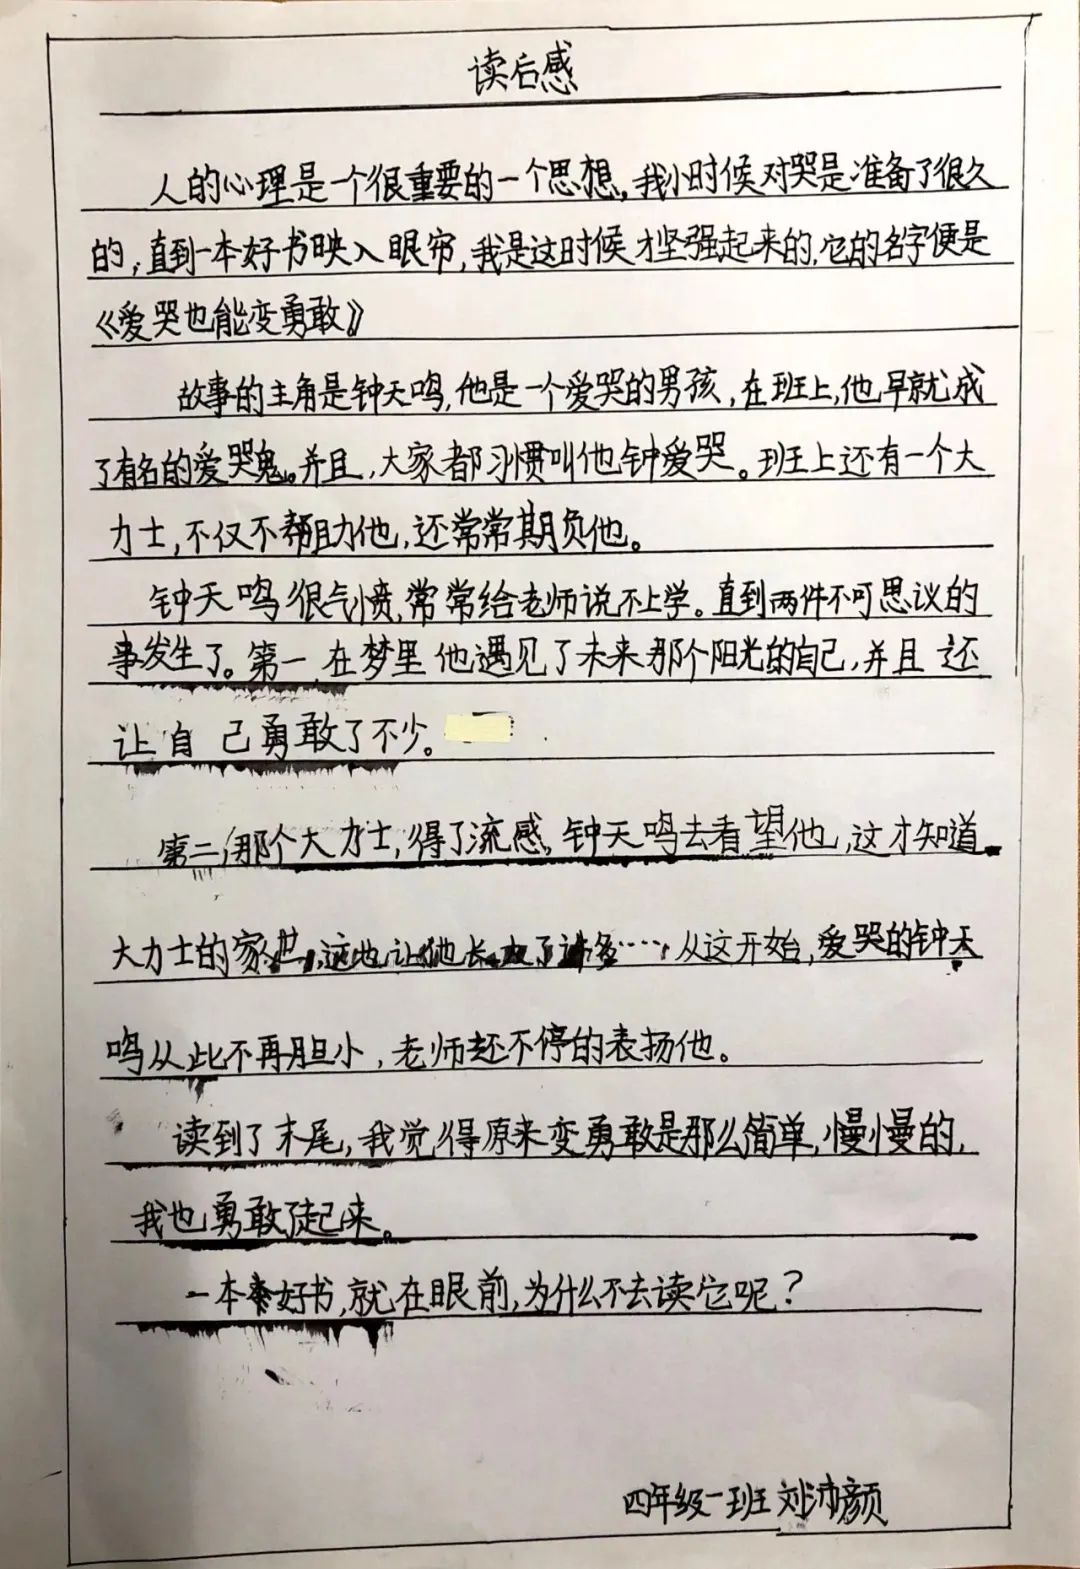 读后感
人的心理是一个很重要的一个思想，我小时候对哭是准备了很久
的，直到一本好书映入眼帘，我是这时候才坚强起来的，它的名字便是
《爱哭也能变勇敢》
故事的主角是钟天鸣，他是一个爱哭的男孩，在班上，他早就成
了有名的爱哭鬼。并且，大家都习惯叫他钟爱哭。班上还有一个大
力士，不仅不帮助他，还常常期负他。
钟天鸣很气愤，常常给老师说不上学。直到两件不可思议的
事发生了。第一，在梦里他遇见了未来那个阳光的自己，并且还
让自己勇敢了不少。
第二，那个大力士，得了流感，钟天鸣去看望他，这才知道
大力士的家世，这也让他长大了许多……，从这开始，爱哭的钟天
鸣从此不再胆小，老师还不停的表扬他。
读到了末尾，我觉得原来变勇敢是那么简单，慢慢的，
我也勇敢了起来。
一本好书，就在眼前，为什么不去读它呢？
四年级一班 刘沛颜